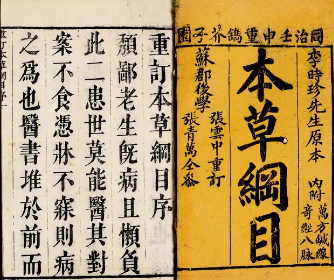 同治壬申重鐫芥子園
李時珍先生原本
內附
萬方鍼線
奇經八脉
本草綱目
張雲中重訂
張青萬仝參
蘇郡後學
重訂本草綱目序
頴鄙老生旣病且懶負
此二患世莫能醫其對
案不食憑牀不寐則病
之爲也醫書堆於前而